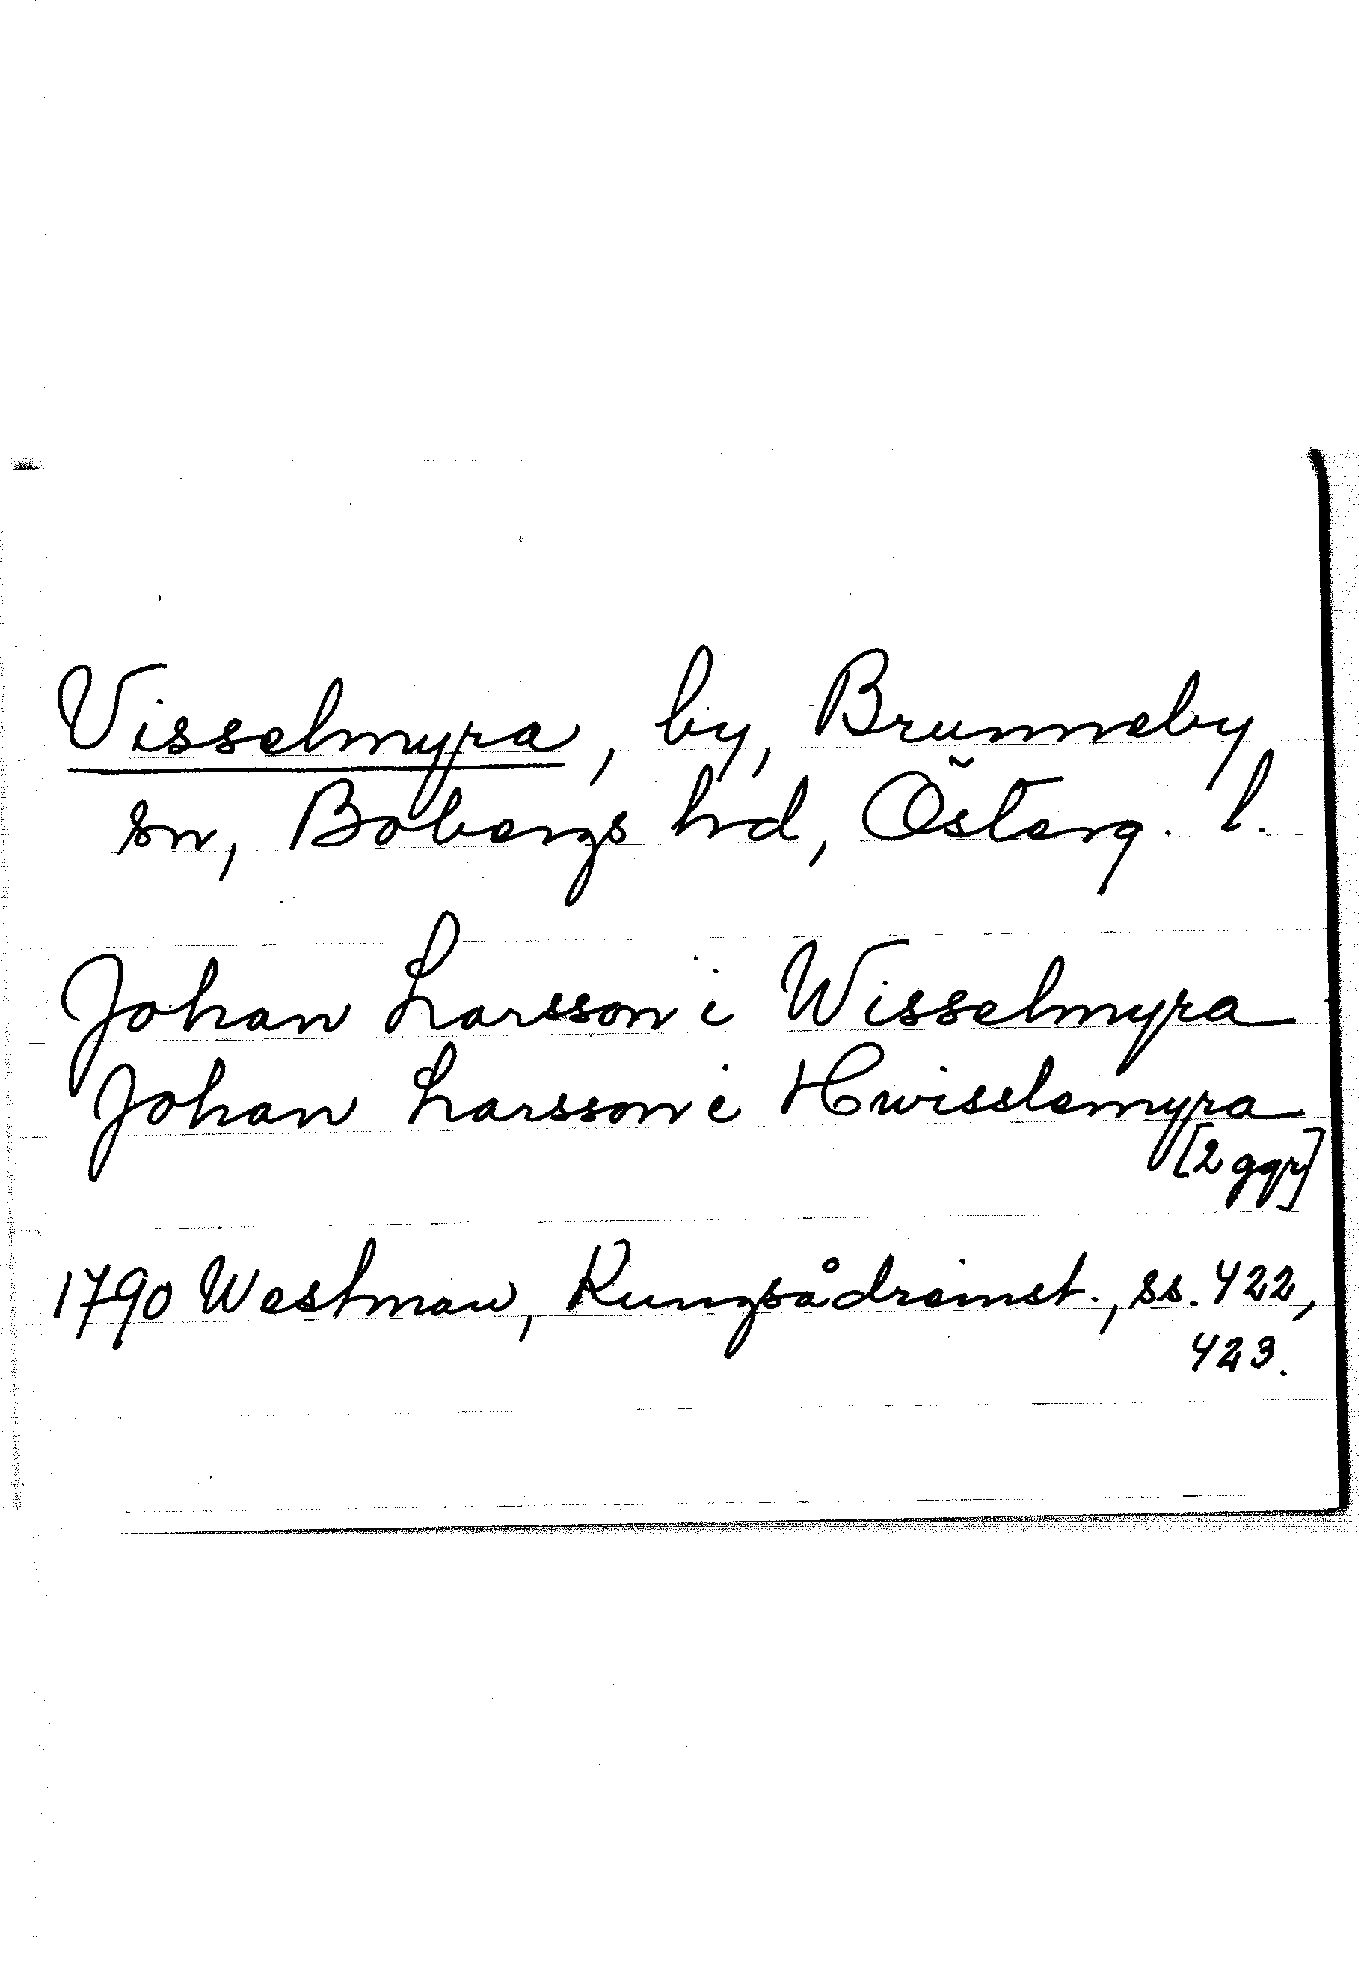 Visselmyra, by, Brunneby
sn, Bobergs hd, Österg. l.
Johan Larsson i Wisselmyra
Johan Larsson i Hwisslemyra
[2 ggr]
1790 Westman, Kungsådreinst., ss. 422,
423.